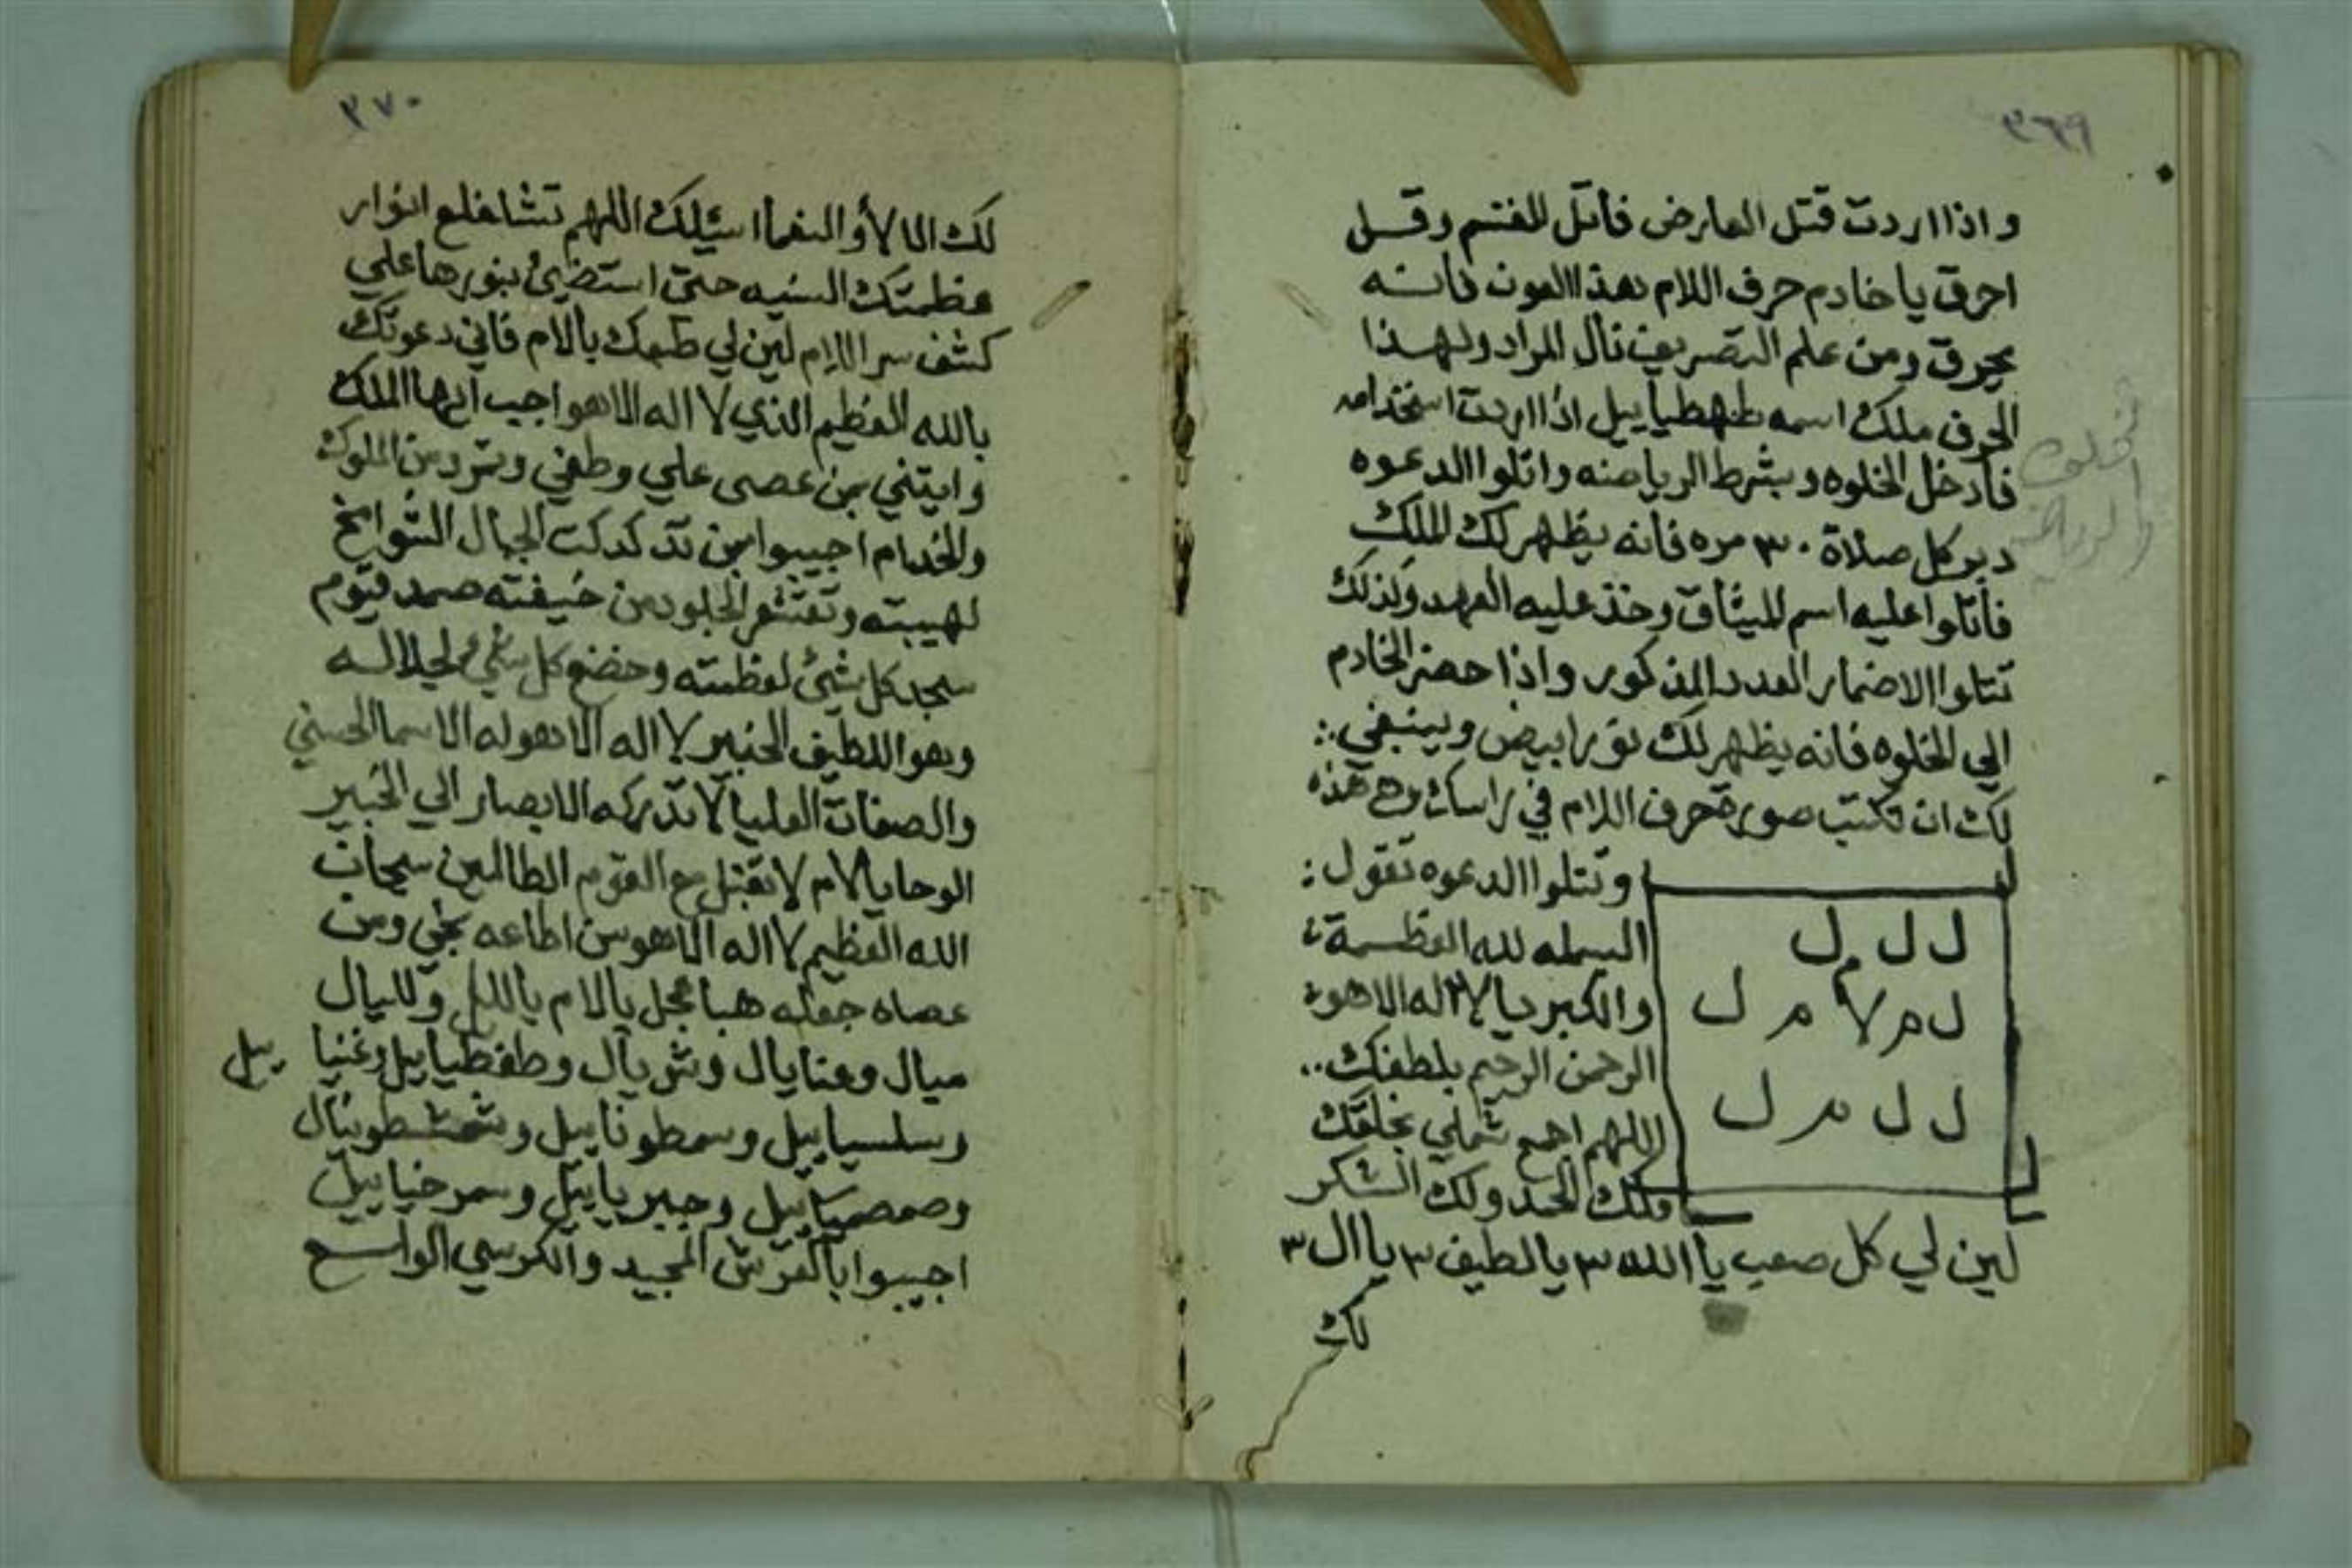 ٣٦٩
واذا اردت قتل العارض فاتل القسم وقل
احرق يا خادم حرف اللام هذا العون فانه
يحرق ومن علم التصريف نال المراد ولهذا
الحرف ملك اسمه طهطياييل اذا اردت استخدامه
فادخل الخلوه وبشرط الرياضه واتلوا الدعوه
دبر كل صلاة ٣٠ مره فانه يظهر لك الملك
فاتلوا عليه اسم الميثاق وخذ عليه العهد وكذلك
تتلوا الاضمار العدد المذكور واذا حضر الخادم
الي الخلوه فانه يظهر لك نورا بيض وينبغي
لك ان تكتب صورة حرف اللام في راسك وهي هذه
وتتلوا الدعوه تقول
البسمله لله العظمة
والكبريا لا اله الا هو
الرحمن الرحيم بلطفك
اللهم اجمع شملي بخلقك
فلك الحمد ولك الشكر
ل ل ل
ل م لا م ل
ل ل م ل
لين لي كل صعب يا الله ٣ يا لطيف ٣ يا ال ٣
لك
٣٧٠
لك الالأ والنعما اسئلك اللهم تشاشع انوار
عظمتك السنيه حتى استضئ بنورها علي
كشف سر اللام لين لي طبعك يالام فاني دعوتك
بالله العظيم الذي لا اله الا هو اجب ايها الملك
وايتني بمن عصى علي وطغي وتمرد من الملوك
والخدام اجيبوا بمن تدكدكت الجبال الشوامخ
لهيبته وتقشعر الجلود من خيفته صمد قيوم
سجد كل شئ لعظمته وخضع كل شئ لجلاله
وهو اللطيف الخبير لا اله الا هو له الاسما الحسني
والصفات العليا لا تدركه الابصار الي الخبير
الوحا يالام لا تقبل مع القوم الظالمين سبحان
الله العظيم لا اله الا هو من اطاعه نجي ومن
عصاه جعله هبا عجل يالام ياللل وللىال
ميال وعنايال وشريال وطفطياييل وغنيا ييل
وسلسياييل وسمطوناييل وشمشطونيال
وصمصمياييل وجبرياييل وسمرخياييل
اجيبوا بالعرش المجيد والكرسي الواسع